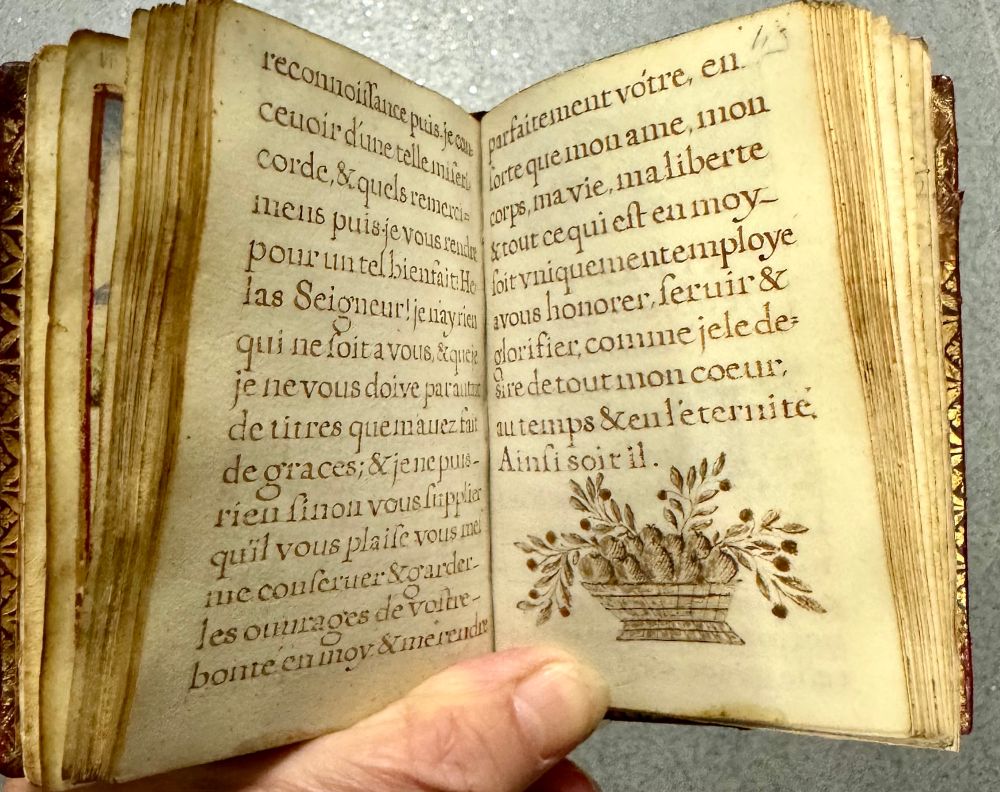 reconnoiſſance puis-je con-
ceuoir d'une telle miſeri-
corde, & quels remerci=
mens puis-je vous rendre
pour un tel bienfait: He-
las Seigneur! je n'ay rien
qui ne ſoit a vous, & que je
je ne vous doive par autant
de titres que m'avez fait
de graces; & je ne puis-
rien ſinon vous ſupplier
qu'il vous plaiſe vous meſ
me conſeruer & garder-
les ouurages de voſtre-
bonté en moy & me rendre
43
parfaitement vótre, en
ſorte que mon ame, mon
corps, ma vie, ma liberte
& tout ce qui eſt en moy-
ſoit vniquement employe
a vous honorer, ſeruir &
glorifier, comme je le de=
sire de tout mon coeur,
au temps & en l'eternité.
Ainſi soit il.